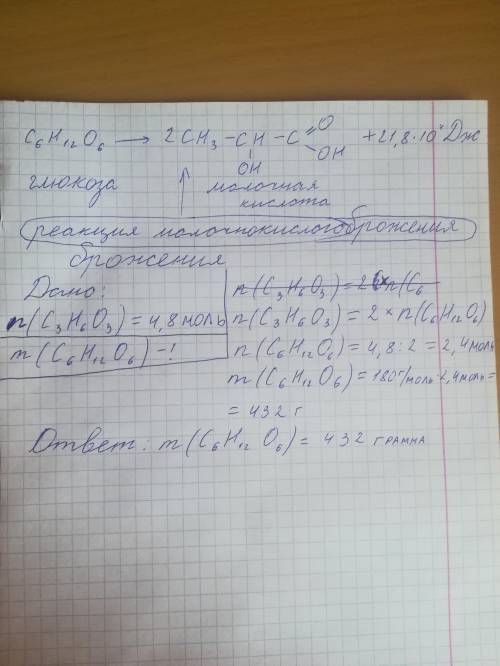 C₆H₁₂O₆ ⟶ 2CH₃ – CH – C =O OH + 21,8·10⁴ Дж
OH
глюкоза молочная
кислота
реакция молочнокислого брожения
брожения
Дано:
n(C₃H₆O₃) = 4,8 моль
m(C₆H₁₂O₆) – !
n(C₃H₆O₃) = 2 n(C₆
n(C₃H₆O₃) = 2 × n(C₆H₁₂O₆)
n(C₆H₁₂O₆) = 4,8 : 2 = 2,4 моль
m(C₆H₁₂O₆) = 180 г/моль · 2,4 моль =
= 432 г
Ответ: m(C₆H₁₂O₆) = 432 грамма